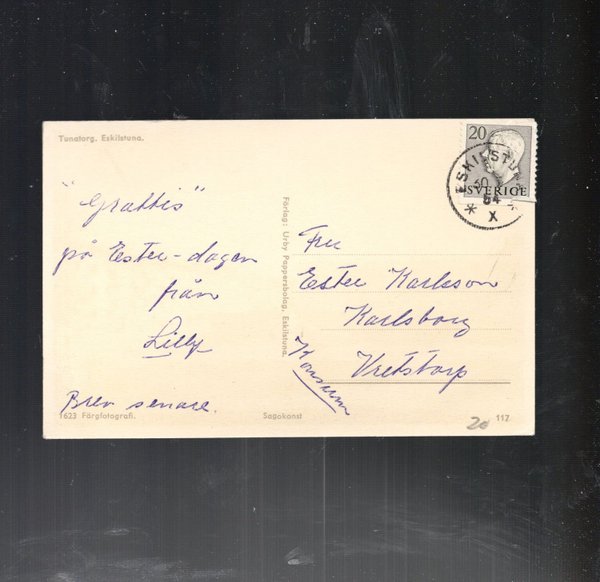 Tunatorg. Eskilstuna.
"Grattis"
på Ester-dagen
från
Lilly
Brev senare.
1623 Färgfotografi.
Sagokonst
Förlag: Urby Pappersbolag, Eskilstuna.
20
SVERIGE
54
X
Fru
Ester Karlsson
Karlsborg
Vretstorp
Konsum
20
117